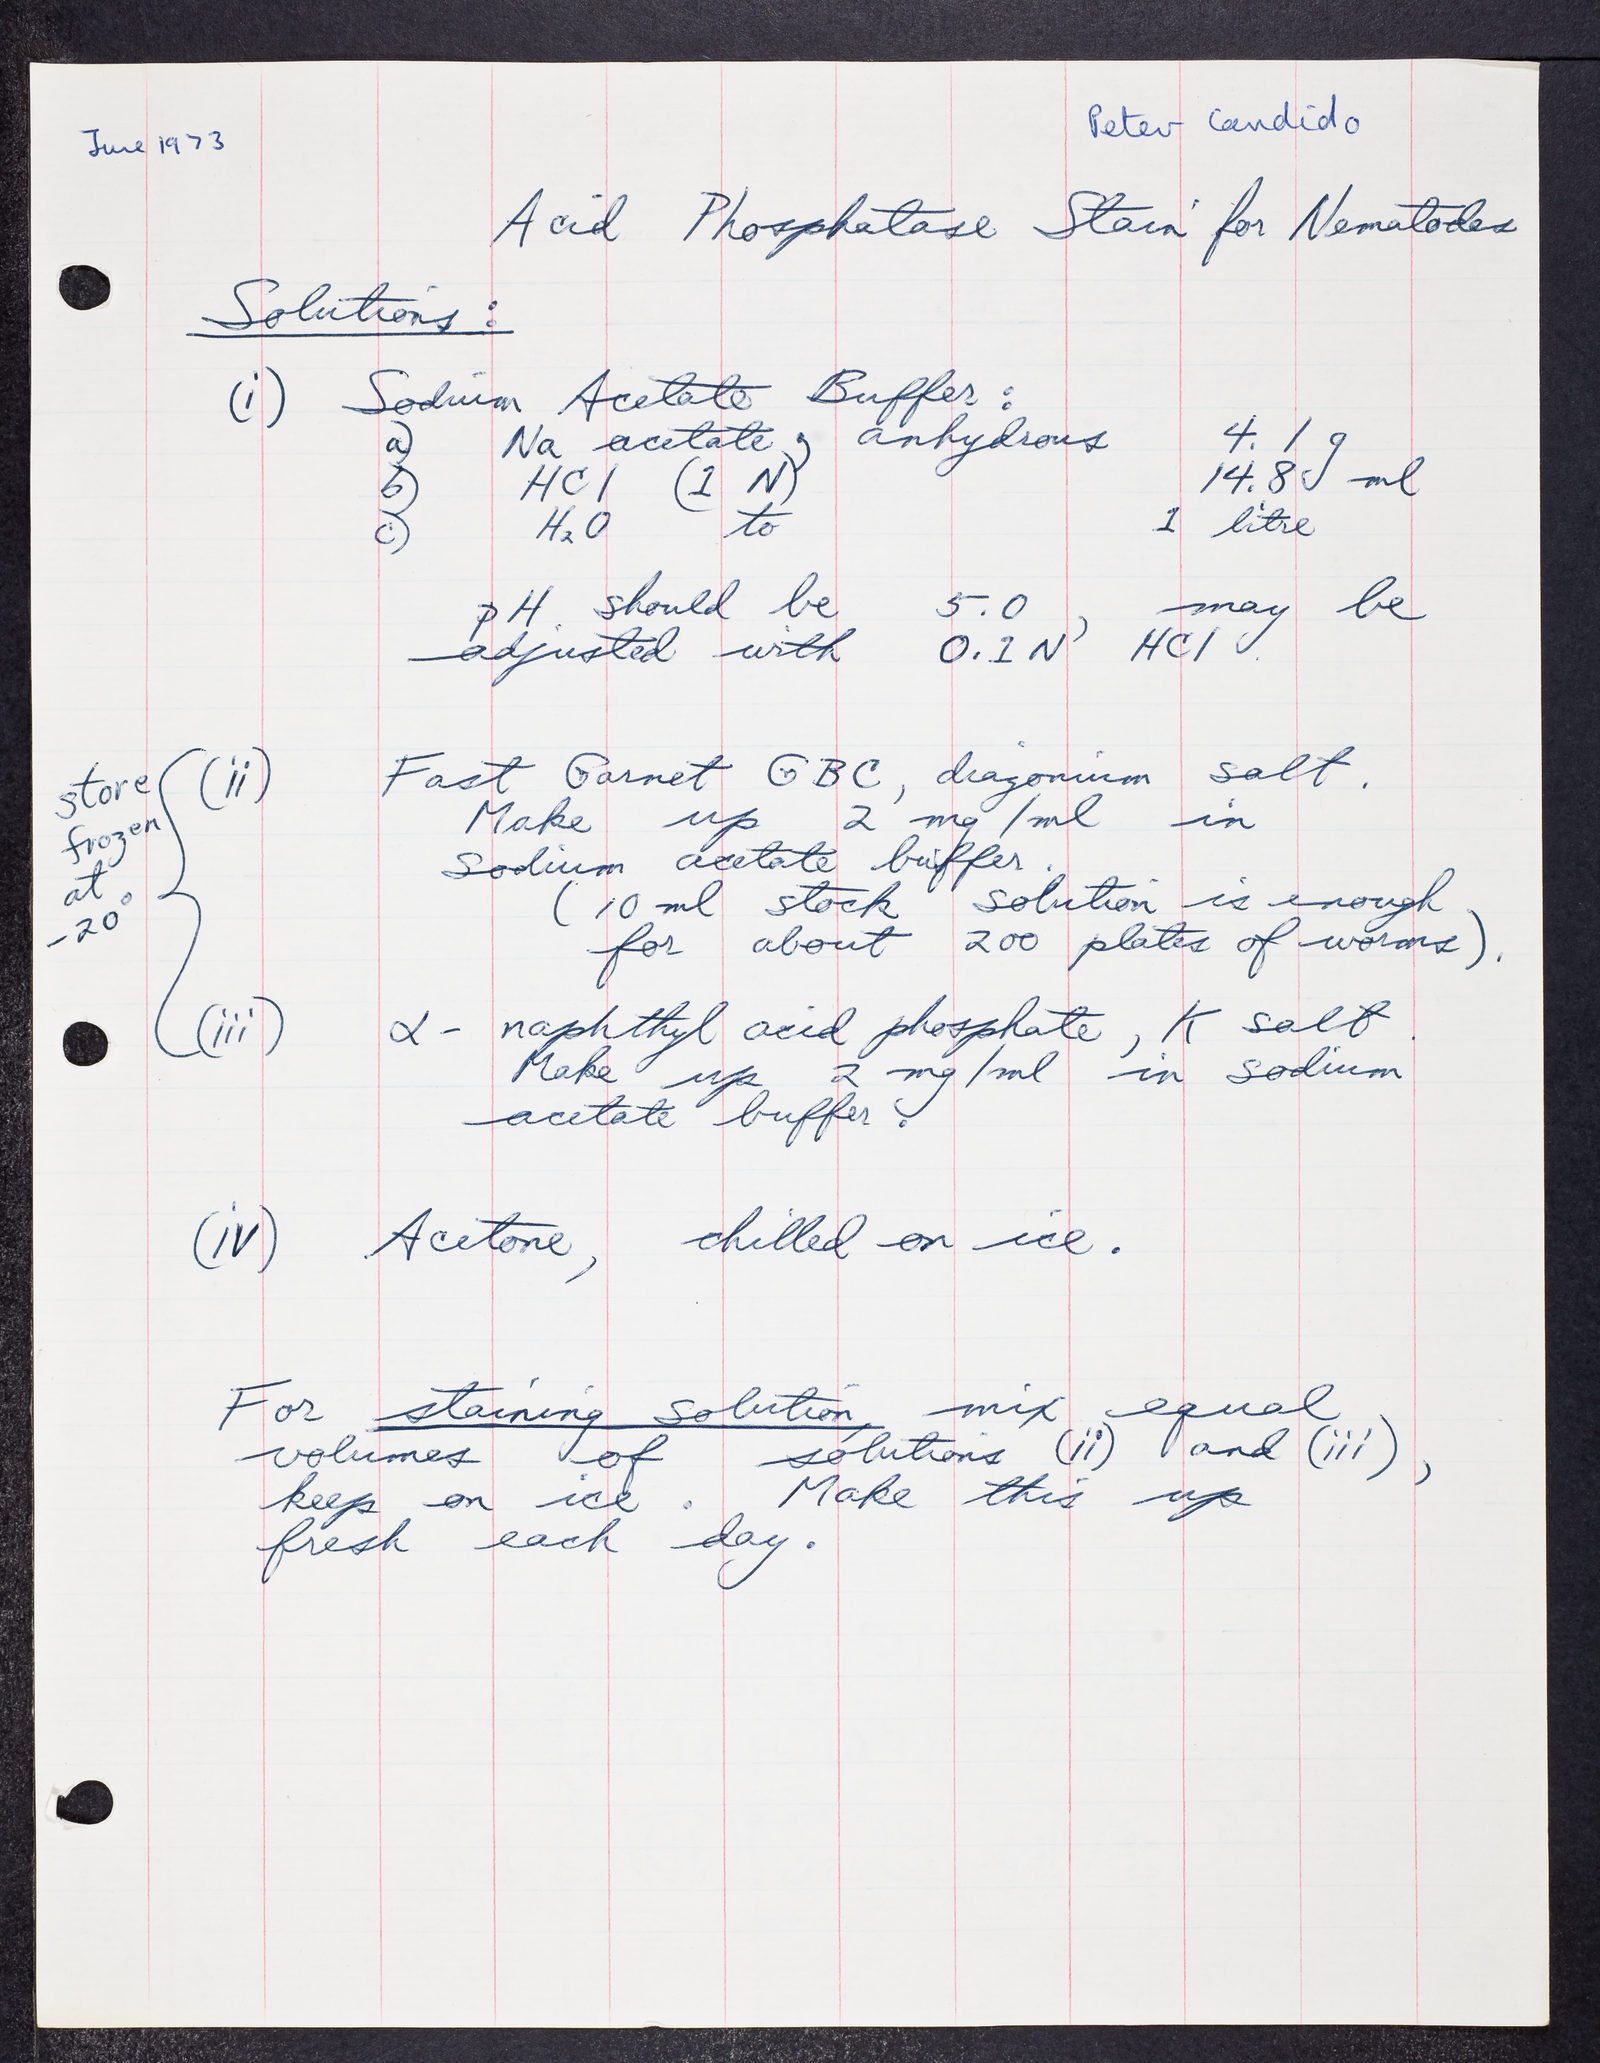 June 1973
Peter Candido
Acid Phosphatase Stain for Nematodes
Solutions:
(i) Sodium Acetate Buffer:
a) Na acetate, anhydrous 4.1 g
b) HCl (1 N) 14.8 ml
c) H₂O to 1 litre
pH should be 5.0, may be
adjusted with 0.1N HCl.
store
frozen
at
-20°
(ii) Fast Garnet GBC, diazonium salt.
Make up 2 mg/ml in
sodium acetate buffer.
(10 ml stock solution is enough
for about 200 plates of worms).
(iii) α-naphthyl acid phosphate, K salt.
Make up 2 mg/ml in sodium
acetate buffer.
(iv) Acetone, chilled on ice.
For staining solution, mix equal
volumes of solutions (ii) and (iii),
keep on ice. Make this up
fresh each day.